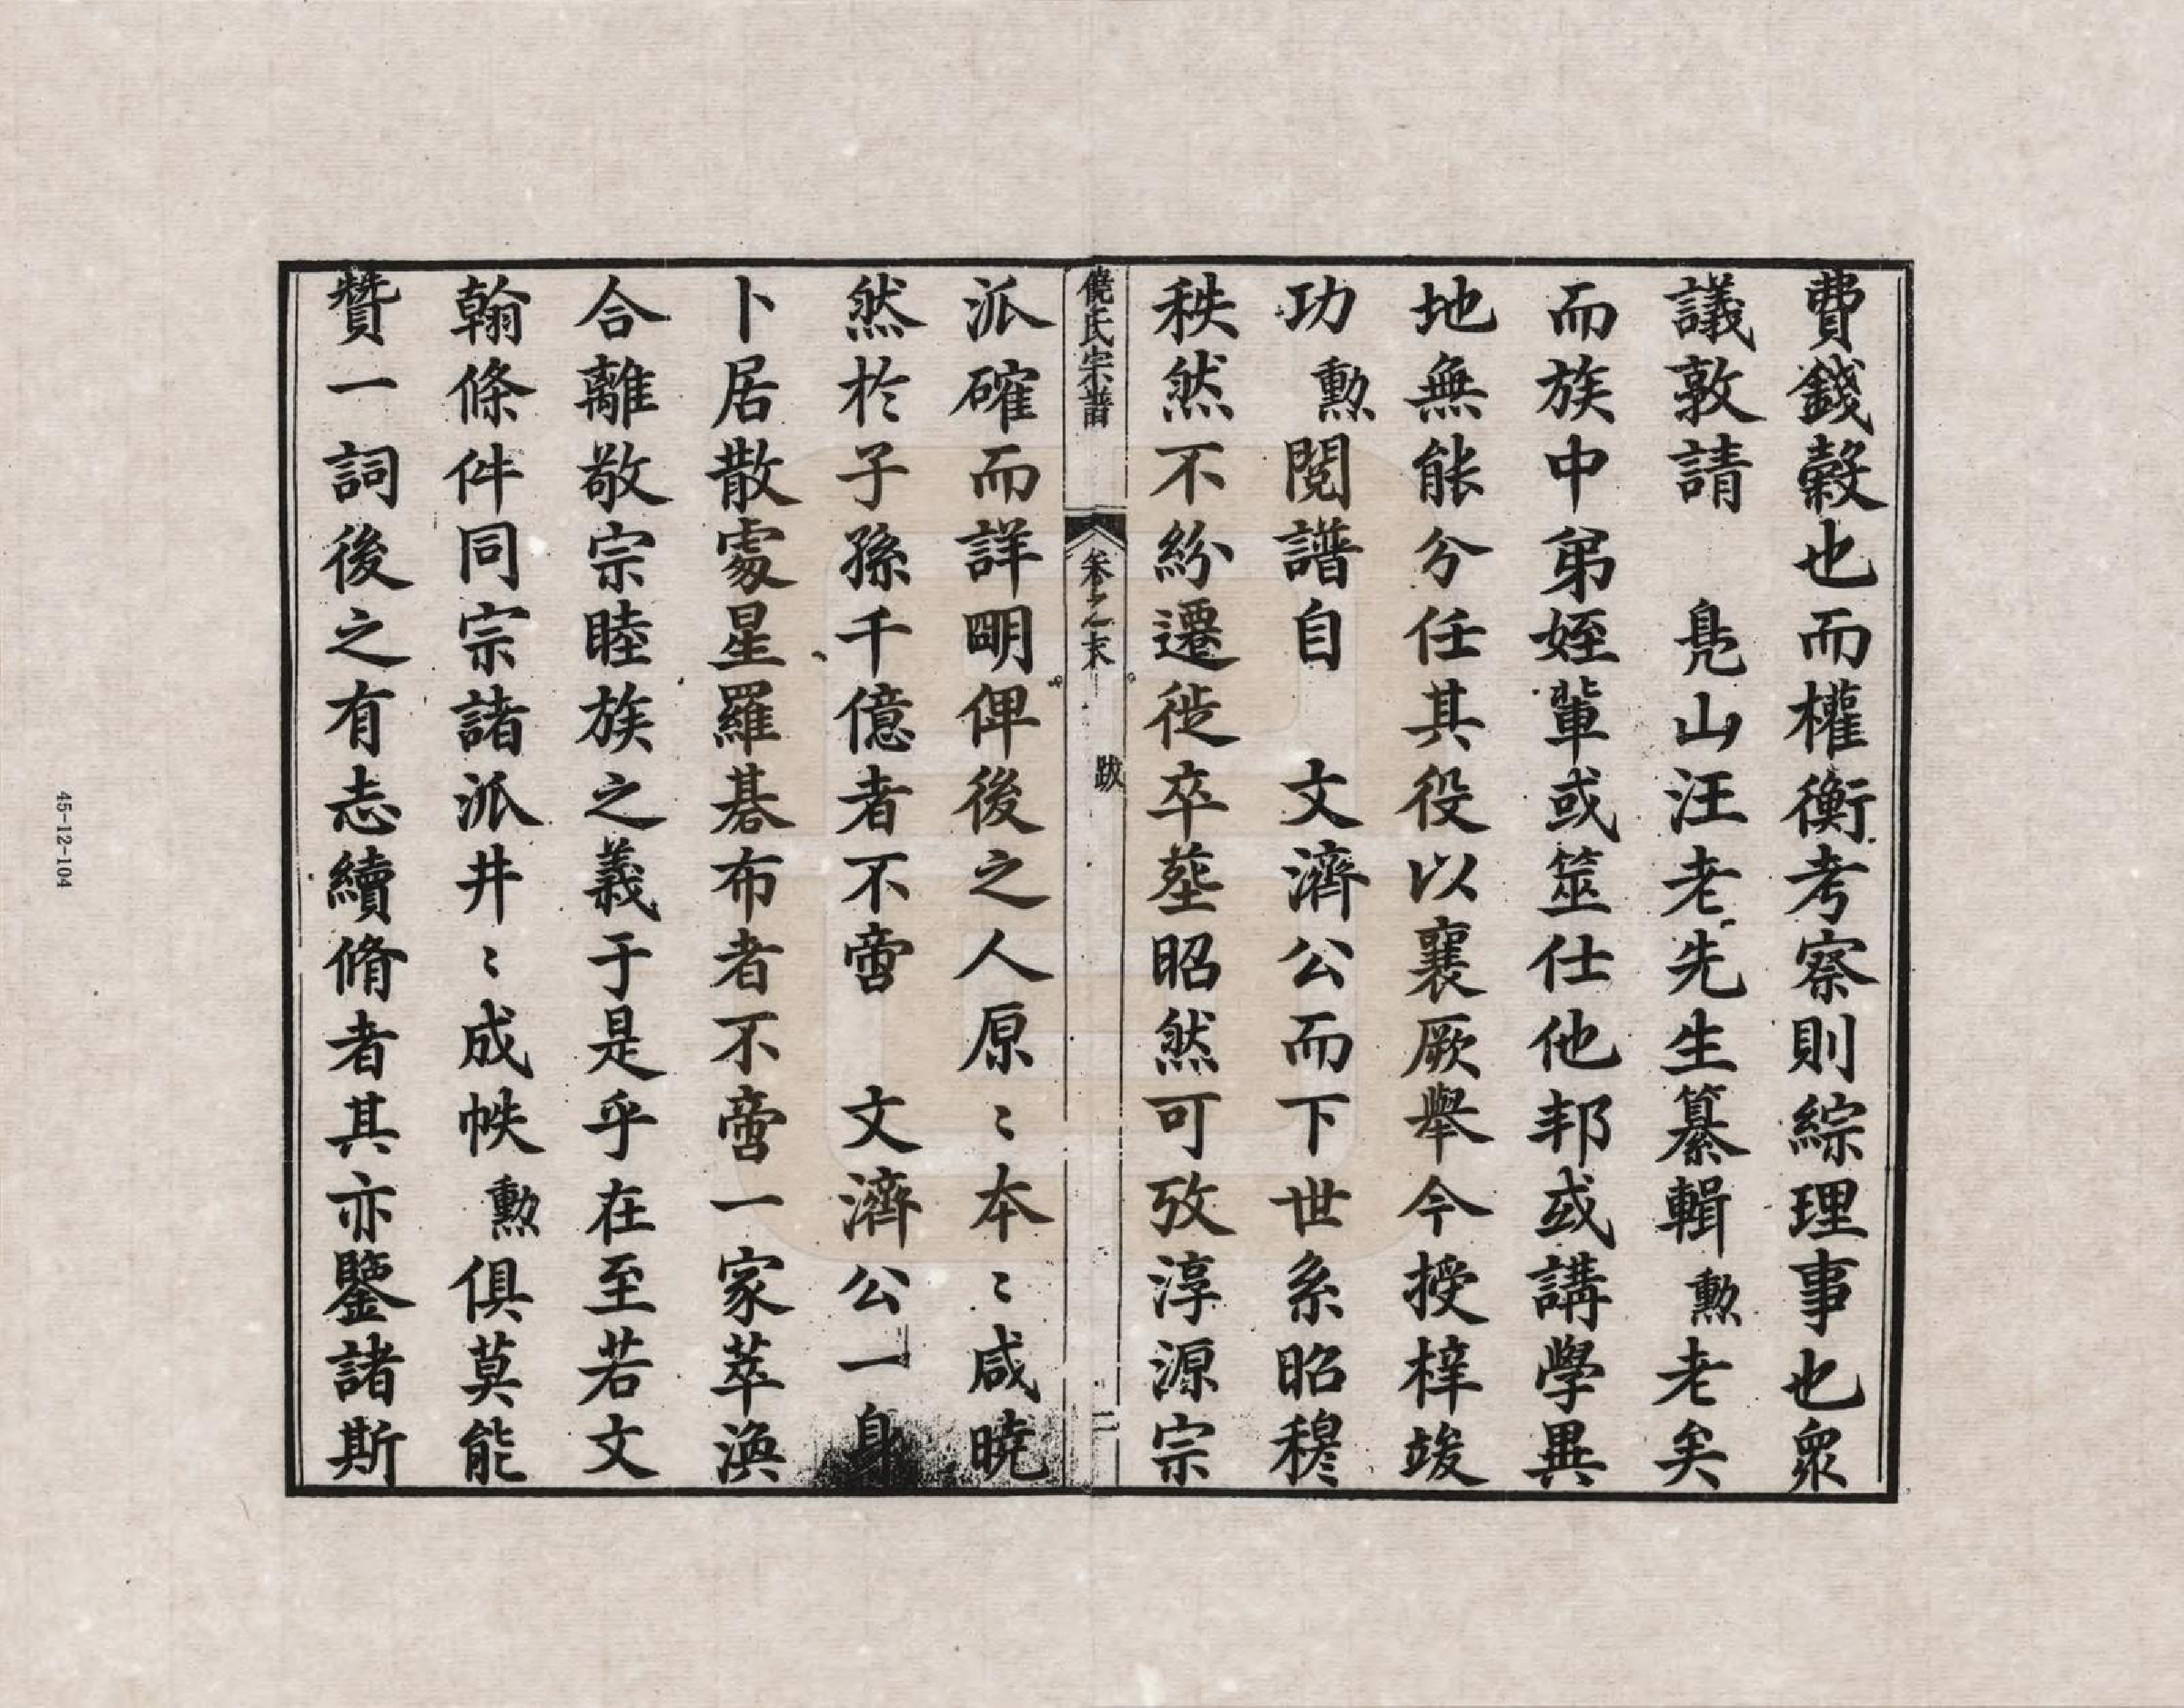 費錢穀也而權衡考察則綜理事也眾
議敦請　鳧山汪老先生纂輯勲老矣
而族中弟姪輩或筮仕他邦或講學異
地無能分任其役以襄厥舉今授梓竣
功勲閱譜自　文濟公而下世系昭穆
秩然不紛遷徙卒塟昭然可攷淳源宗
僥氏宗譜　卷之末　跋　二
派確而詳明俾後之人原〻本〻咸曉
然於子孫千億者不啻　文濟公一身
卜居散處星羅碁布者不啻一家萃渙
合離敬宗睦族之義于是乎在至若文
翰條件同宗諸派井〻成帙勲俱莫能
贊一詞後之有志續脩者其亦鑒諸斯
45-12-104